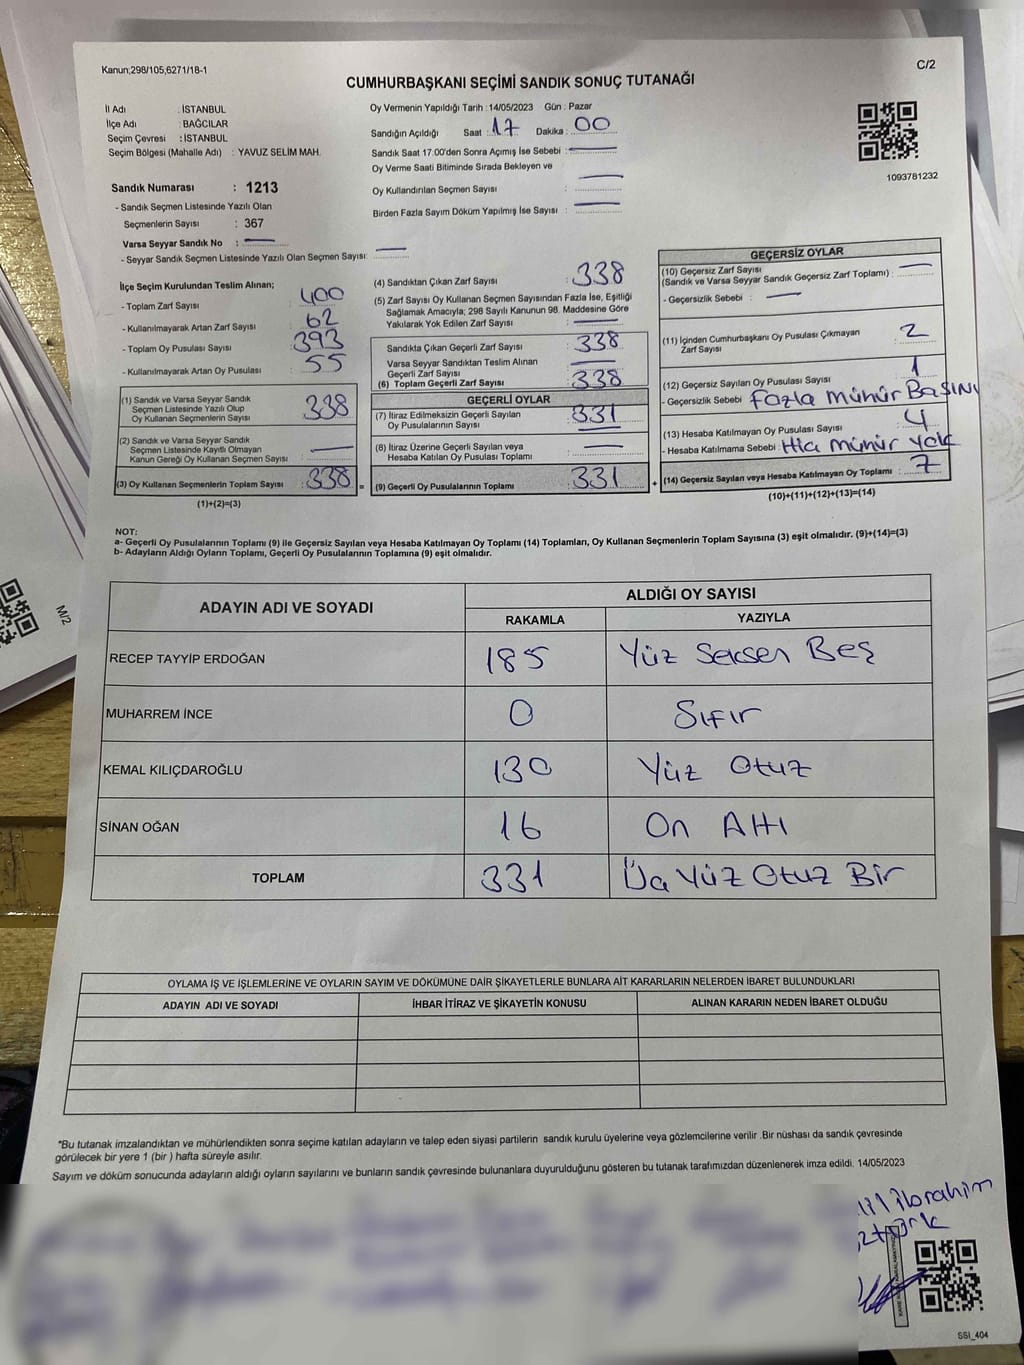 Kanun;298/105,6271/18-1
C/2
CUMHURBAŞKANI SEÇİMİ SANDIK SONUÇ TUTANAĞI
İl Adı : İSTANBUL
İlçe Adı : BAĞCILAR
Seçim Çevresi : İSTANBUL
Seçim Bölgesi (Mahalle Adı) : YAVUZ SELİM MAH.
Sandık Numarası : 1213
- Sandık Seçmen Listesinde Yazılı Olan
Seçmenlerin Sayısı : 367
Varsa Seyyar Sandık No :
- Seyyar Sandık Seçmen Listesinde Yazılı Olan Seçmen Sayısı:
Oy Vermenin Yapıldığı Tarih : 14/05/2023 Gün : Pazar
Sandığın Açıldığı Saat : 17 Dakika : 00
Sandık Saat 17.00'den Sonra Açımış İse Sebebi :
Oy Verme Saati Bitiminde Sırada Bekleyen ve
Oy Kullandırılan Seçmen Sayısı :
Birden Fazla Sayım Döküm Yapılmış İse Sayısı :
1093781232
İlçe Seçim Kurulundan Teslim Alınan;
- Toplam Zarf Sayısı : 400
- Kullanılmayarak Artan Zarf Sayısı : 62
- Toplam Oy Pusulası Sayısı : 393
- Kullanılmayarak Artan Oy Pusulası : 55
(1) Sandık ve Varsa Seyyar Sandık
Seçmen Listesinde Yazılı Olup
Oy Kullanan Seçmenlerin Sayısı : 338
(2) Sandık ve Varsa Seyyar Sandık
Seçmen Listesinde Kayıtlı Olmayan
Kanun Gereği Oy Kullanan Seçmen Sayısı :
(3) Oy Kullanan Seçmenlerin Toplam Sayısı : 338 =
(1)+(2)=(3)
(4) Sandıktan Çıkan Zarf Sayısı : 338
(5) Zarf Sayısı Oy Kullanan Seçmen Sayısından Fazla İse, Eşitliği
Sağlamak Amacıyla; 298 Sayılı Kanunun 98. Maddesine Göre
Yakılarak Yok Edilen Zarf Sayısı :
Sandıkta Çıkan Geçerli Zarf Sayısı : 338
Varsa Seyyar Sandıktan Teslim Alınan
Geçerli Zarf Sayısı :
(6) Toplam Geçerli Zarf Sayısı : 338
GEÇERLİ OYLAR
(7) İtiraz Edilmeksizin Geçerli Sayılan
Oy Pusulalarının Sayısı : 331
(8) İtiraz Üzerine Geçerli Sayılan veya
Hesaba Katılan Oy Pusulası Toplamı :
(9) Geçerli Oy Pusulalarının Toplamı : 331 +
GEÇERSİZ OYLAR
(10) Geçersiz Zarf Sayısı
(Sandık ve Varsa Seyyar Sandık Geçersiz Zarf Toplamı) :
- Geçersizlik Sebebi :
(11) İçinden Cumhurbaşkanı Oy Pusulası Çıkmayan
Zarf Sayısı : 2
(12) Geçersiz Sayılan Oy Pusulası Sayısı : 1
- Geçersizlik Sebebi : Fazla Münür Basını
(13) Hesaba Katılmayan Oy Pusulası Sayısı : 4
- Hesaba Katılmama Sebebi : Hia Münür yok
(14) Geçersiz Sayılan veya Hesaba Katılmayan Oy Toplamı : 7
(10)+(11)+(12)+(13)=(14)
NOT:
a- Geçerli Oy Pusulalarının Toplamı (9) ile Geçersiz Sayılan veya Hesaba Katılmayan Oy Toplamı (14) Toplamları, Oy Kullanan Seçmenlerin Toplam Sayısına (3) eşit olmalıdır. (9)+(14)=(3)
b- Adayların Aldığı Oyların Toplamı, Geçerli Oy Pusulalarının Toplamına (9) eşit olmalıdır.
ADAYIN ADI VE SOYADI
ALDIĞI OY SAYISI
RAKAMLA YAZIYLA
RECEP TAYYİP ERDOĞAN 185 Yüz Seksen Beş
MUHARREM İNCE 0 Sıfır
KEMAL KILIÇDAROĞLU 130 Yüz Otuz
SİNAN OĞAN 16 On Altı
TOPLAM 331 Üa Yüz Otuz Bir
OYLAMA İŞ VE İŞLEMLERİNE VE OYLARIN SAYIM VE DÖKÜMÜNE DAİR ŞİKAYETLERLE BUNLARA AİT KARARLARIN NELERDEN İBARET BULUNDUKLARI
ADAYIN ADI VE SOYADI İHBAR İTİRAZ VE ŞİKAYETİN KONUSU ALINAN KARARIN NEDEN İBARET OLDUĞU
*Bu tutanak imzalandıktan ve mühürlendikten sonra seçime katılan adayların ve talep eden siyasi partilerin sandık kurulu üyelerine veya gözlemcilerine verilir .Bir nüshası da sandık çevresinde
görülecek bir yere 1 (bir ) hafta süreyle asılır.
Sayım ve döküm sonucunda adayların aldığı oyların sayılarını ve bunların sandık çevresinde bulunanlara duyurulduğunu gösteren bu tutanak tarafımızdan düzenlenerek imza edildi. 14/05/2023
ibrahim
SSI_404
M/2